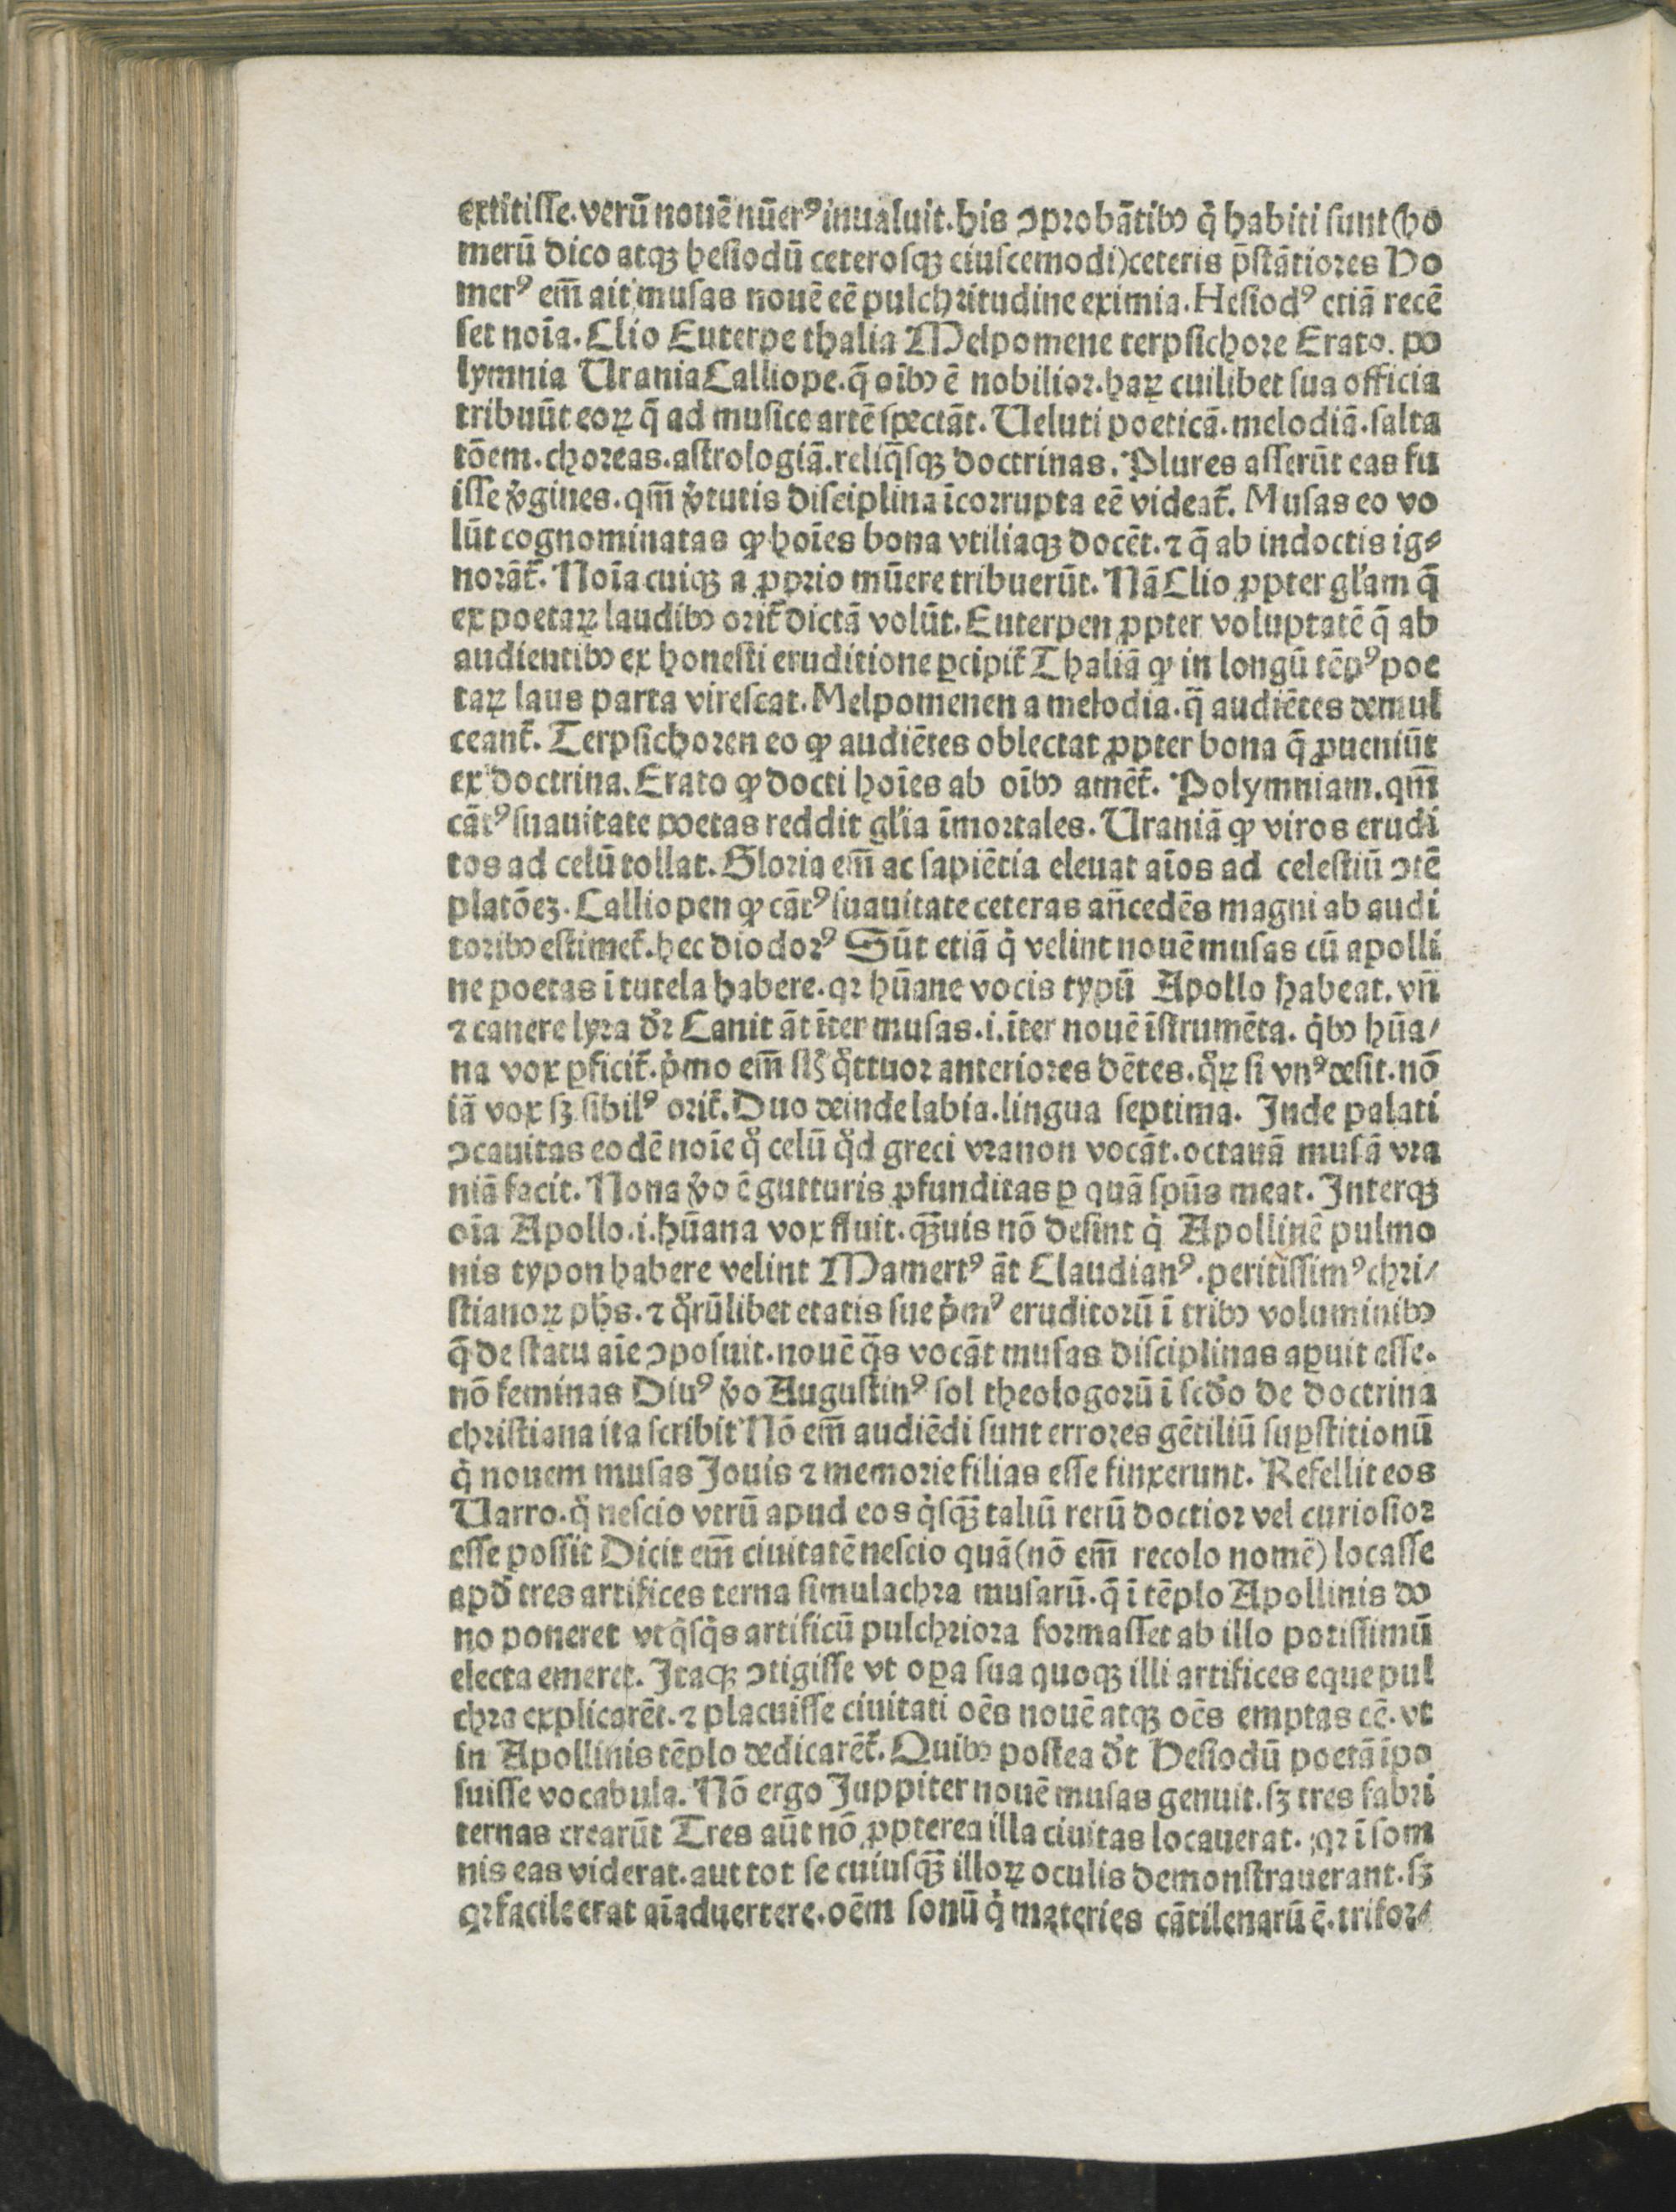 extitisse. verū nouē nūerꝰ inualuit. his ↄprobātibꝫ q̇ habiti sunt (ho
merū dico atqꝫ hesiodū ceterosqꝫ eiuscemodi) ceteris p̄stātiores Ho
merꝰ em̄ ait musas nouē eē pulchritudine eximia. Hesiodꝰ etiā recē
set noīa. Clio Euterpe thalia Melpomene terpsichore Erato. po
lymnia Urania Calliope. q̄ oībꝫ ē nobilior. haꝝ cuilibet sua officia
tribuūt eoꝝ q̄ ad musice artē spectāt. Ueluti poeticā. melodiā. salta
tōem. choreas. astrologiā. reliq̄sqꝫ doctrinas. Plures asserūt eas fu
isse v̓gines. qm̄ v̓tutis disciplina īcorrupta eē videat̃. Musas eo vo
lūt cognominatas ꝙ hoīes bona vtiliaqꝫ docēt. ⁊ q̄ ab indoctis ig⸗
norāt̃. Noīa cuiqꝫ a ꝓprio mūere tribuerūt. Nā Clio ꝓpter gl’am q̄
ex poetaꝝ laudibꝫ orit̃ dictā volūt. Euterpen ꝓpter voluptatē q̄ ab
audientibꝫ ex honesti eruditione ꝑcipit̃ Thaliā ꝙ in longū tēpꝰ poe
taꝝ laus parta virescat. Melpomenen a melodia. q̄ audiētes demul
ceant̃. Terpsichoren eo ꝙ audiētes oblectat ꝓpter bona q̄ ꝓueniūt
ex doctrina. Erato ꝙ docti hoīes ab oībꝫ amēt̃. Polymniam. qm̄
cātꝰ suauitate poetas reddit gl’ia īmortales. Uraniā ꝙ viros erudi
tos ad celū tollat. Gloria em̄ ac sapiētia eleuat aīos ad celestiū ↄtē
platōeꝫ. Calliopen ꝙ cātꝰ suauitate ceteras an̄cedēs magni ab audi
toribꝫ estimet̃. hec diodorꝰ Sūt etiā q̇ velint nouē musas cū apolli
ne poetas ī tutela habere. qꝛ hūane vocis typū Apollo habeat. vn̄
⁊ canere lyra dꝛ̓ Canit āt īter musas .i. īter nouē īstrumēta. q̇bꝫ hūa/
na vox ꝑficit̃. p̓mo em̄ sūt q̊ttuor anteriores dētes. q̊ꝝ si vnꝰ desit. nō
iā vox sꝫ sibilꝰ orit̃. Duo deinde labia. lingua septima. Inde palati
ↄcauitas eodē noīe q̊ celū q̊d greci vranon vocāt. octauā musā vra
niā facit. Nona v̓o ē gutturis ꝓfunditas ꝑ quā spūs meat. Interqꝫ
oīa Apollo .i. hūana vox fluit. q̄ꝫuis nō desint q̇ Apollinē pulmo
nis typon habere velint Mamertꝰ āt Claudianꝰ. peritissimꝰ chri/
stianoꝝ ph̄s. ⁊ q̊rūlibet etatis sue p̓mꝰ eruditorū ī tribꝫ voluminibꝫ
q̄ de statu aīe ↄposuit. nouē q̄s vocāt musas disciplinas aꝑuit esse.
nō feminas Diuꝰ v̓o Augustinꝰ sol theologorū ī scd̓o de doctrina
christiana ita scribit Nō em̄ audiēdi sunt errores gētiliū suꝑstitionū
q̇ nouem musas Jouis ⁊ memorie filias esse finxerunt. Refellit eos
Uarro. q̊ nescio vtrū apud eos q̇sq̄ꝫ taliū rerū doctior vel curiosior
esse possit Dicit em̄ ciuitatē nescio quā (nō em̄ recolo nomē) locasse
apd̓ tres artifices terna simulachra musarū. q̄ ī tēplo Apollinis do
no poneret vt q̇sq̇s artificū pulchriora formasset ab illo potissimū
electa emeret. Itaqꝫ ↄtigisse vt oꝑa sua quoqꝫ illi artifices eque pul
chra explicarēt. ⁊ placuisse ciuitati oēs nouē atqꝫ oēs emptas eē. vt
in Apollinis tēplo dedicarēt̃. Quibꝫ postea d̓t Hesiodū poetā īpo
suisse vocabula. Nō ergo Juppiter nouē musas genuit. sꝫ tres fabri
ternas crearūt Tres aūt nō ꝓpterea illa ciuitas locauerat. qꝛ ī som
nis eas viderat. aut tot se cuiusq̄ꝫ illoꝝ oculis demonstrauerant. sꝫ
qꝛ facile erat aīaduertere. oēm sonū q̇ materies cātilenarū ē. trifor/